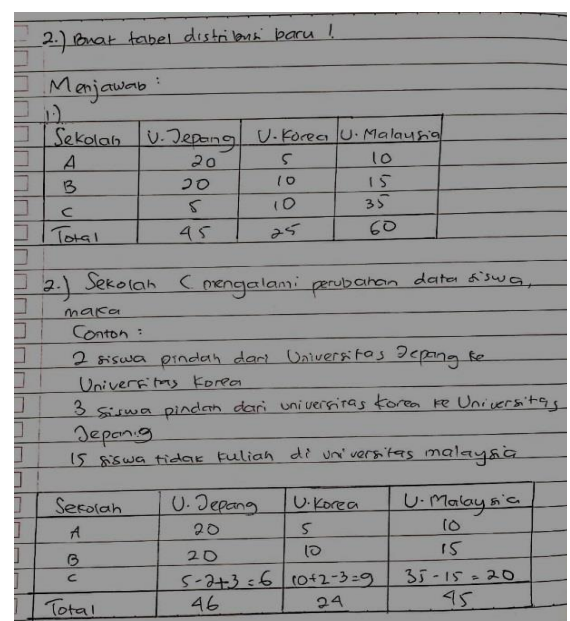 2.) Buat tabel distribusi baru !
Menjawab :
1.)
Sekolah U. Jepang U. Korea U. Malaysia
A 20 5 10
B 20 10 15
C 5 10 35
Total 45 25 60
2.) Sekolah C mengalami perubahan data siswa,
maka
Contoh :
2 siswa pindah dari Universitas Jepang ke
Universitas Korea
3 siswa pindah dari universitas korea ke Universitas
Jepang
15 siswa tidak kuliah di universitas malaysia
Sekolah U. Jepang U. Korea U. Malaysia
A 20 5 10
B 20 10 15
C 5-2+3=6 10+2-3=9 35-15=20
Total 46 24 45